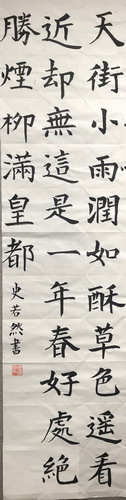 天街小雨潤如酥草色遥看
近却無這是一年春好處絕
勝煙柳滿皇都
史若然書